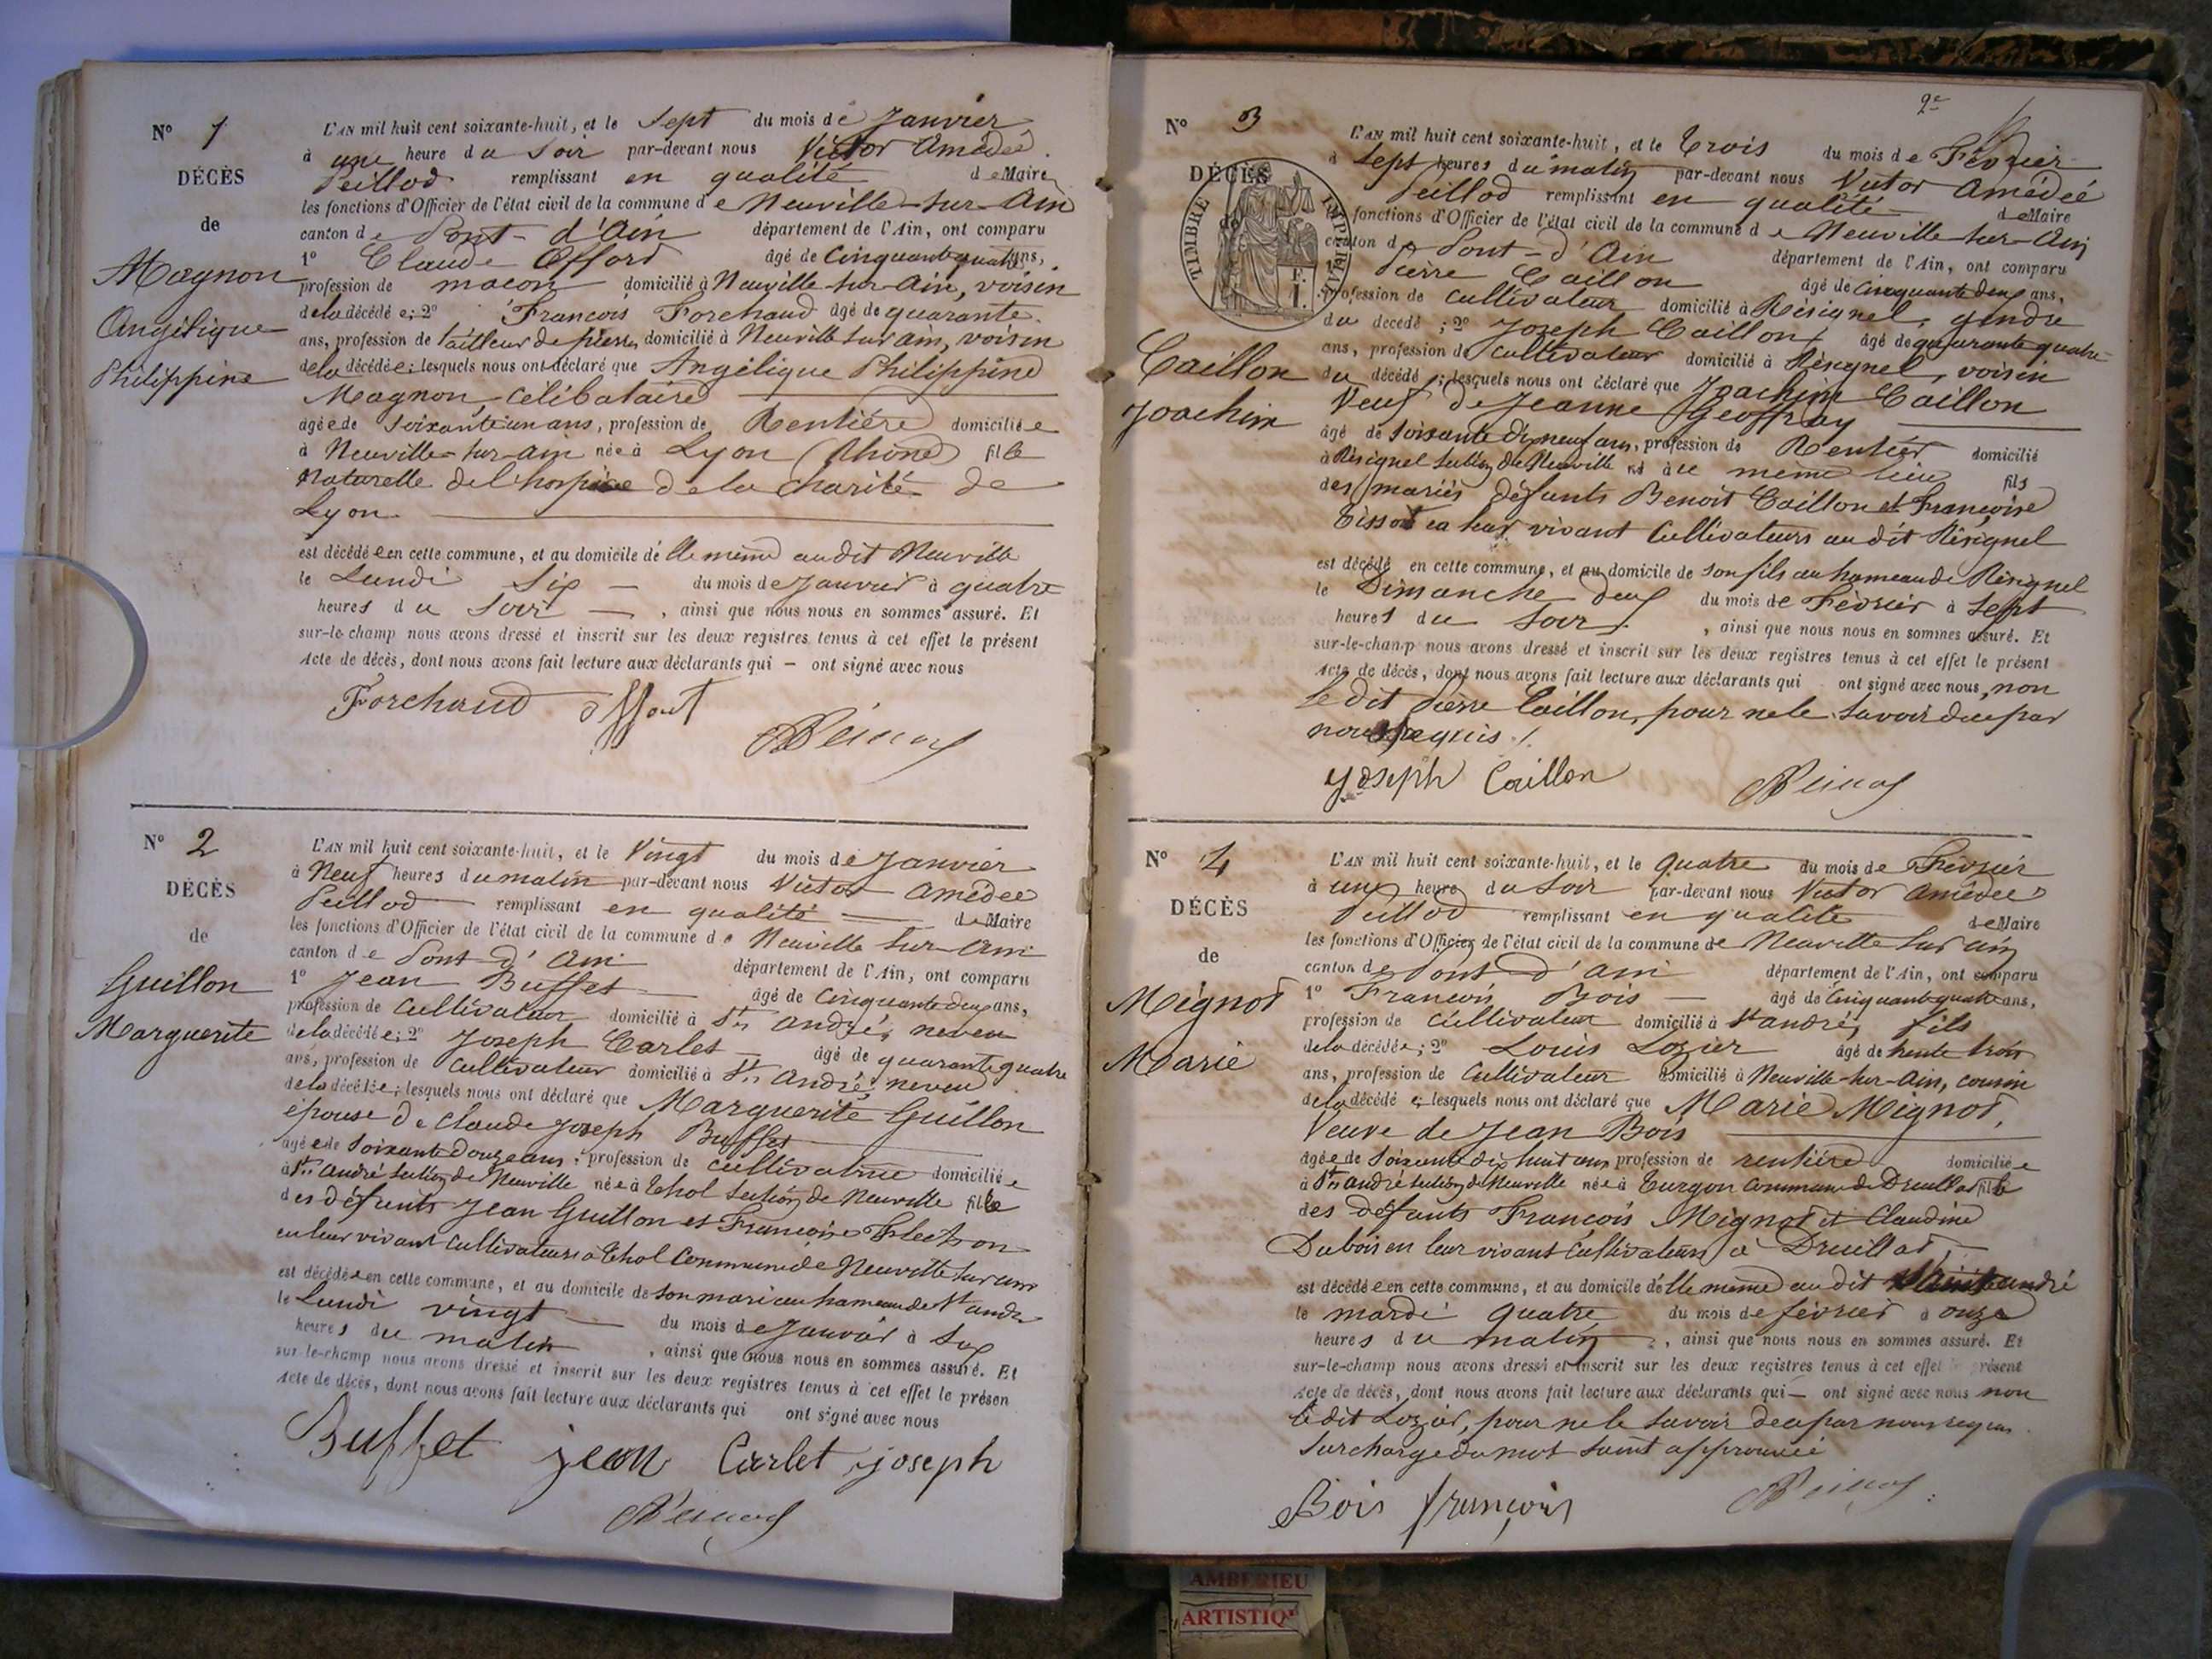 N° 1
DÉCÈS
de
Magnon
Angélique
Philippine
L'AN mil huit cent soixante-huit, et le Sept du mois de Janvier
à une heure du Soir par-devant nous Victor Amédée
Peillod remplissant en qualité de Maire
les fonctions d'Officier de l'état civil de la commune de Neuville-sur-Ain
canton de Pont-d'Ain département de l'Ain, ont comparu
1° Claude Offord âgé de Cinquante quatre ans,
profession de macon domicilié à Neuville-sur-Ain, voisin
de la décédée; 2° François Forchaud âgé de quarante
ans, profession de tailleur de pierres domicilié à Neuville sur ain, voisin
de la décédée; lesquels nous ont déclaré que Angélique Philippine
Magnon, Célibataire
âgée de Soixante un ans, profession de Rentière domiciliée
à Neuville-sur-ain née à Lyon (Rhône) fille
Naturelle de l'hospice de la Charité de
Lyon
est décédée en cette commune, et au domicile de elle même au dit Neuville
le Lundi Six du mois de Janvier à quatre
heures du Soir, ainsi que nous nous en sommes assuré. Et
sur-le-champ nous avons dressé et inscrit sur les deux registres tenus à cet effet le présent
Acte de décès, dont nous avons fait lecture aux déclarants qui — ont signé avec nous
Forchaud
N° 2
DÉCÈS
de
Guillon
Marguerite
L'AN mil huit cent soixante-huit, et le Vingt du mois de Janvier
à Neuf heures du matin par-devant nous Victor Amédée
Peillod remplissant en qualité de Maire
les fonctions d'Officier de l'état civil de la commune de Neuville Sur-Ain
canton de Pont d'Ain département de l'Ain, ont comparu
1° Jean Buffet âgé de Cinquante deux ans,
profession de Cultivateur domicilié à St André, neveu
de la décédée; 2° Joseph Carlet âgé de quarante quatre
ans, profession de Cultivateur domicilié à St André, neveu
de la décédée; lesquels nous ont déclaré que Marguerite Guillon
épouse de Claude Joseph Buffet
âgée de Soixante Douze ans, profession de cultivatrice domiciliée
à St André Section de Neuville née à Thol Section de Neuville fille
des défunts Jean Guillon et Françoise
en leur vivant Cultivateurs à Thol Commune de Neuville sur ain
est décédée en cette commune, et au domicile de Son mari au hameau de St andré
le Lundi vingt du mois de Janvier à Six
heures du matin, ainsi que nous nous en sommes assuré. Et
sur-le-champ nous avons dressé et inscrit sur les deux registres tenus à cet effet le présen
Acte de décès, dont nous avons fait lecture aux déclarants qui ont signé avec nous
Buffet jean Carlet joseph
2e
N° 3
DÉCÈS
TIMBRE IMPERIAL
Caillon
Joachim
L'AN mil huit cent soixante-huit, et le Trois du mois de Février
à Sept heures du matin par-devant nous Victor Amédée
Peillod remplissant en qualité de Maire
les fonctions d'Officier de l'état civil de la commune de Neuville-Sur-Ain
canton de Pont-d'Ain département de l'Ain, ont comparu
1° Pierre Caillon âgé de Cinquante deux ans,
profession de Cultivateur domicilié à Résignel, gendre
du décédé; 2° Joseph Caillon, âgé de quarante quatre
ans, profession de Cultivateur domicilié à Résignel, voisin
du décédé; lesquels nous ont déclaré que Joachim Caillon
Veuf de Jeanne Geoffray
âgé de Soixante Dix neuf ans, profession de Rentier domicilié
à Résignel Section de Neuville né à ce même lieu fils
des mariés défunts Benoit Caillon et Françoise
Tissot en leur vivant Cultivateurs au dit Résignel
est décédé en cette commune, et au domicile de Son fils au hameau de Résignel
le Dimanche deux du mois de Février à Sept
heures du Soir, ainsi que nous nous en sommes assuré. Et
sur-le-champ nous avons dressé et inscrit sur les deux registres tenus à cet effet le présent
Acte de décès, dont nous avons fait lecture aux déclarants qui ont signé avec nous, non
le dit Pierre Caillon, pour ne le Savoir de ce par
nous requis.
Joseph Caillon
N° 4
DÉCÈS
de
Mignot
Marie
L'AN mil huit cent soixante-huit, et le Quatre du mois de Février
à une heure du Soir par-devant nous Victor Amédée
Peillod remplissant en qualité de Maire
les fonctions d'Officier de l'état civil de la commune de Neuville Sur ain
canton de Pont d'Ain département de l'Ain, ont comparu
1° François Bois âgé de Cinquante quatre ans,
profession de Cultivateur domicilié à St andré, fils
de la décédée; 2° Louis Lozier âgé de trente trois
ans, profession de Cultivateur domicilié à Neuville-sur-Ain, cousin
de la décédée; lesquels nous ont déclaré que Marie Mignot,
Veuve de Jean Bois
âgée de Soixante dix huit ans profession de rentière domiciliée
à St andré section de Neuville née à Turgon Commune de Druillat fille
des défunts François Mignot et Claudine
Dubois en leur vivant Cultivateurs à Druillat,
est décédée en cette commune, et au domicile d'elle même au dit Saint andré
le mardi Quatre du mois de février à onze
heures du matin, ainsi que nous nous en sommes assuré. Et
sur-le-champ nous avons dressé et inscrit sur les deux registres tenus à cet effet le présent
Acte de décès, dont nous avons fait lecture aux déclarants qui — ont signé avec nous non
le dit Lozier, pour ne le Savoir de ce par nous requis
Surcharge du mot Saint approuvée
Bois françois
AMBERIEU
ARTISTIQ